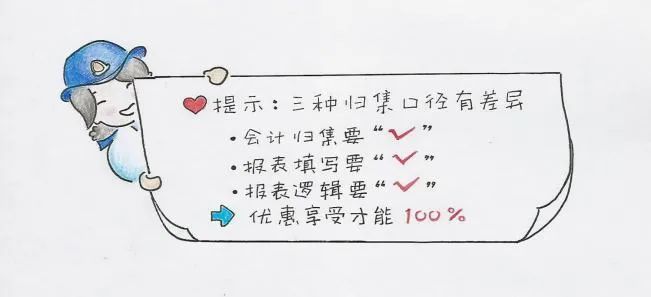 ❤提示:三种归集口径有差异
·会计归集要“✓”
·报表填写要“✓”
·报表逻辑要“✓”
➡优惠享受才能100%